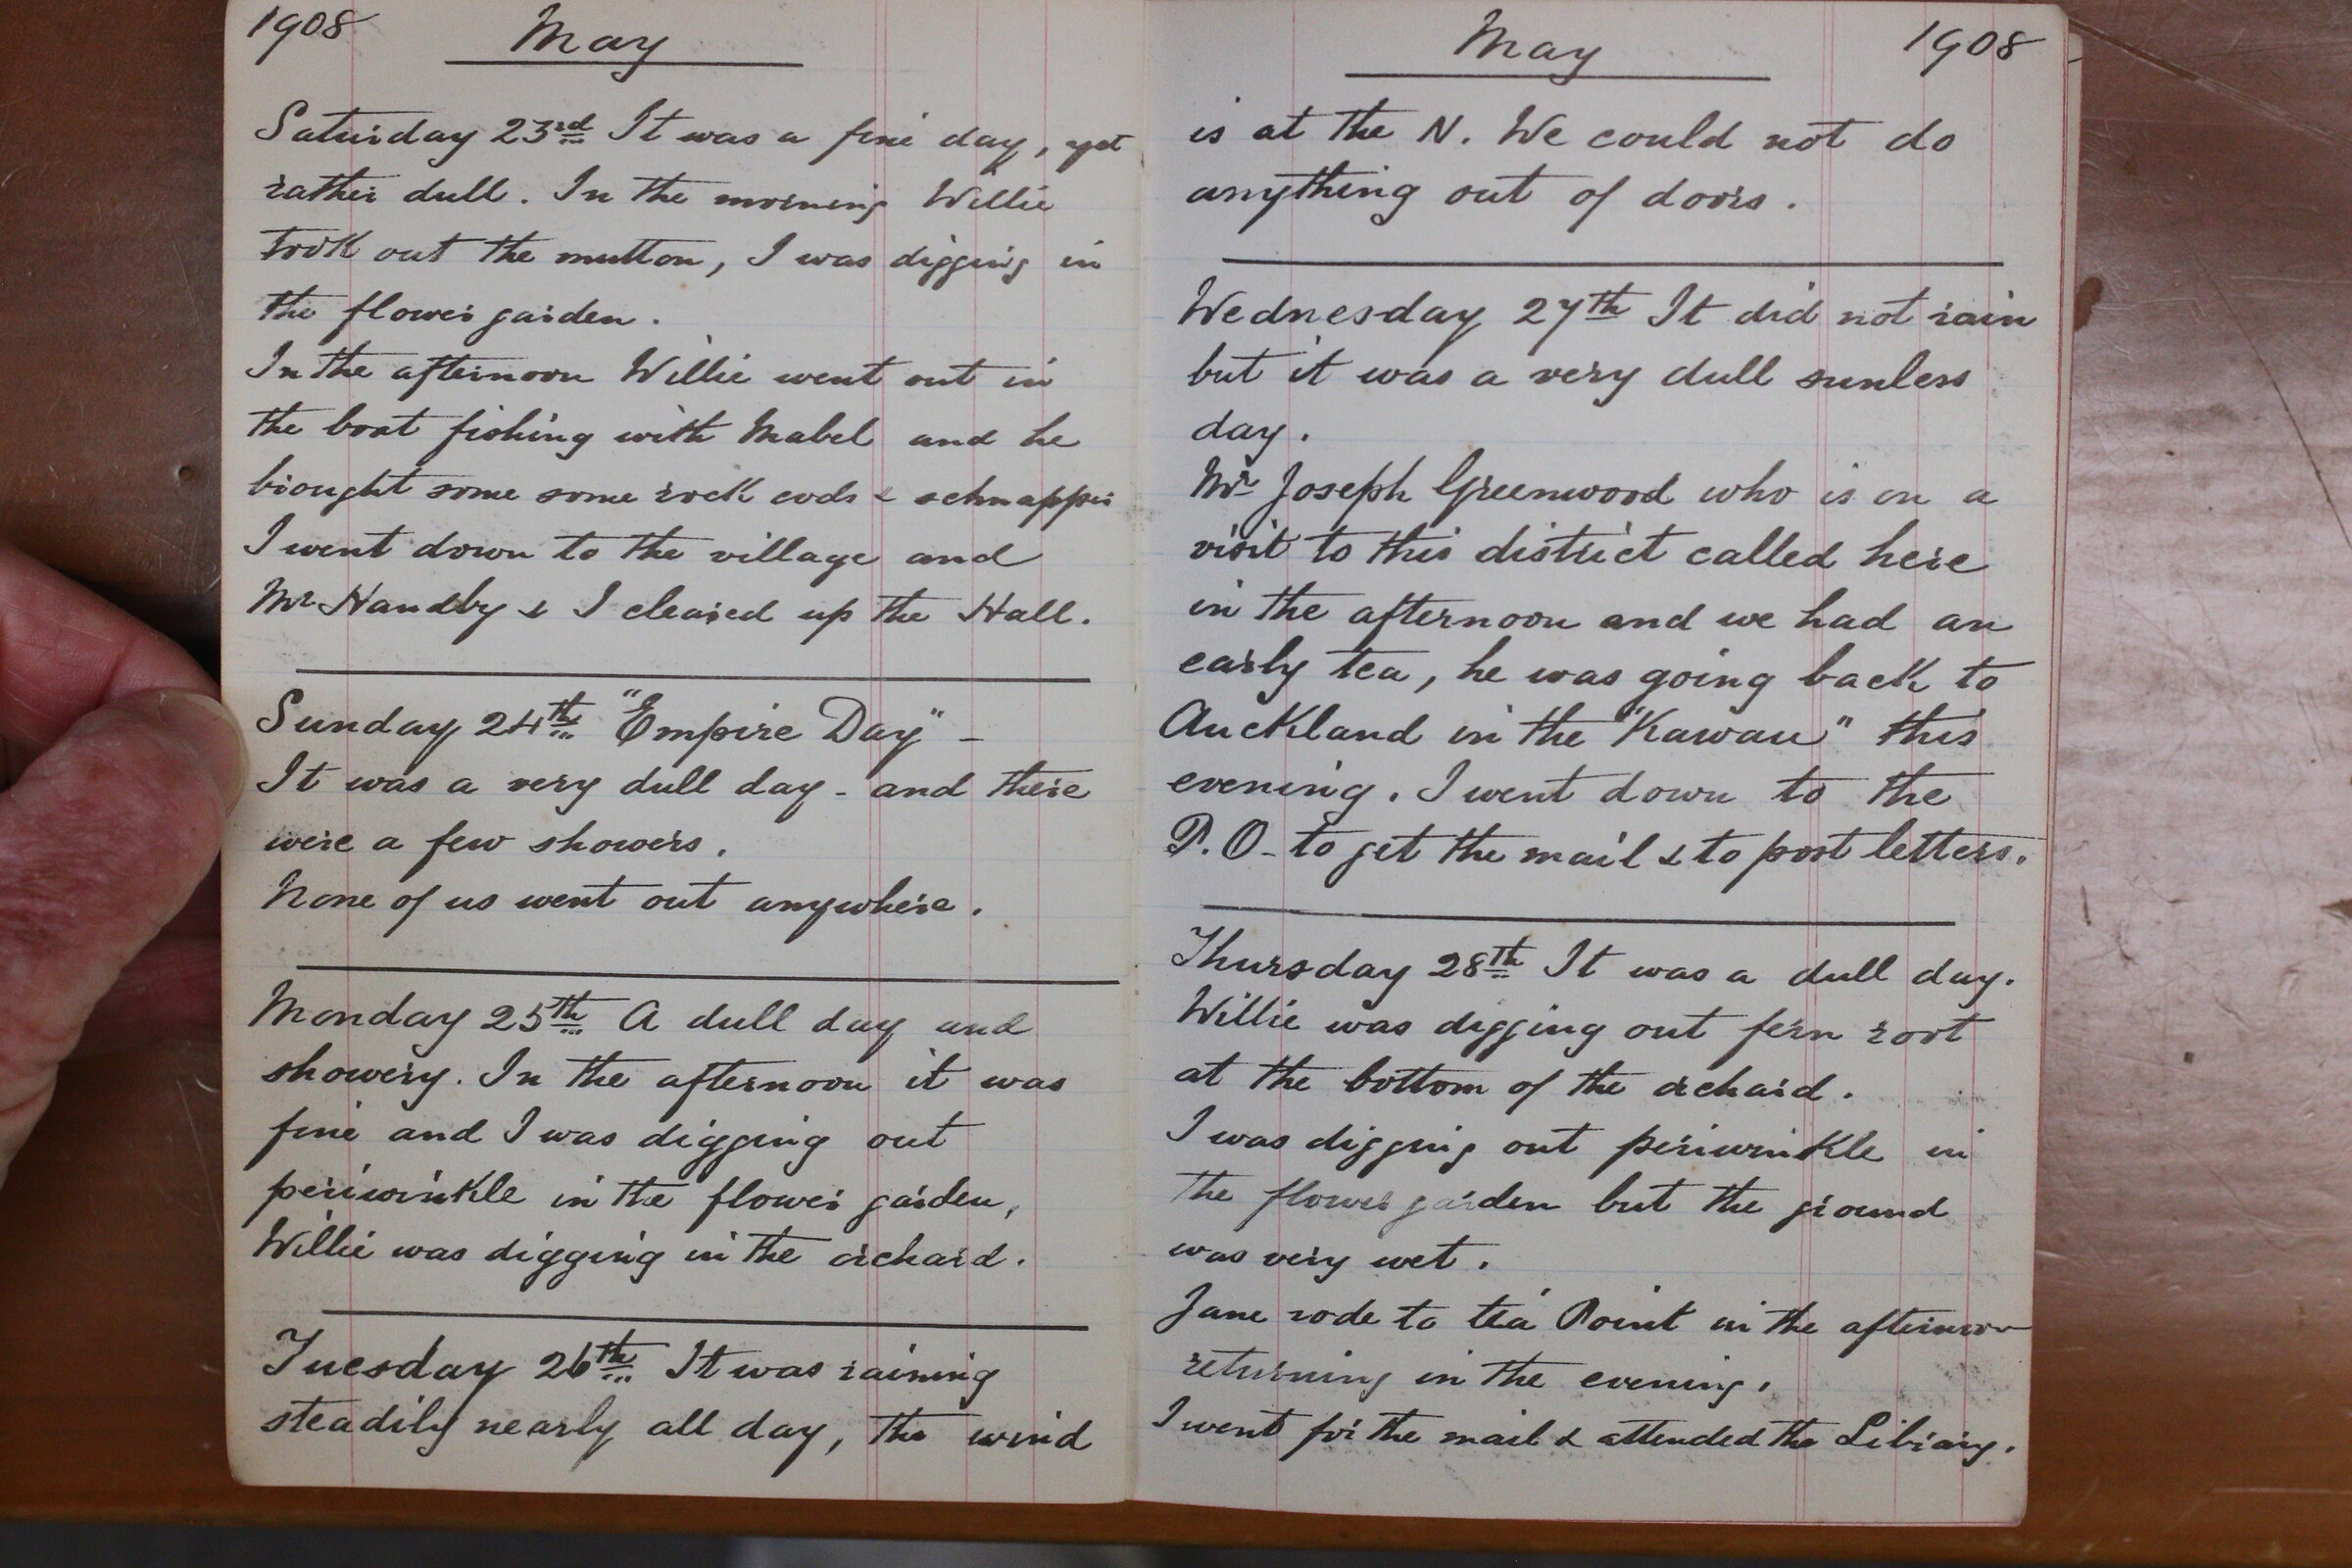 1908 May
Saturday 23rd It was a fine day, yet
rather dull. In the morning Willie
took out the mutton, I was digging in
the flower garden.
In the afternoon Willie went out in
the boat fishing with Mabel and he
brought some some rock cods & schnapper
I went down to the village and
Mr Handby & I cleared up the Hall.
Sunday 24th "Empire Day" -
It was a very dull day - and there
were a few showers.
None of us went out anywhere.
Monday 25th A dull day and
showery. In the afternoon it was
fine and I was digging out
periwinkle in the flower garden,
Willie was digging in the orchard.
Tuesday 26th It was raining
steadily nearly all day, the wind
May 1908
is at the N. We could not do
anything out of doors.
Wednesday 27th It did not rain
but it was a very dull sunless
day.
Mr Joseph Greenwood who is on a
visit to this district called here
in the afternoon and we had an
early tea, he was going back to
Auckland in the "Kawau" this
evening. I went down to the
P.O. to get the mail & to post letters.
Thursday 28th It was a dull day.
Willie was digging out fern root
at the bottom of the orchard.
I was digging out periwinkle in
the flower garden but the ground
was very wet.
Jane rode to tea Point in the afternoon
returning in the evening.
I went for the mail & attended the Library.